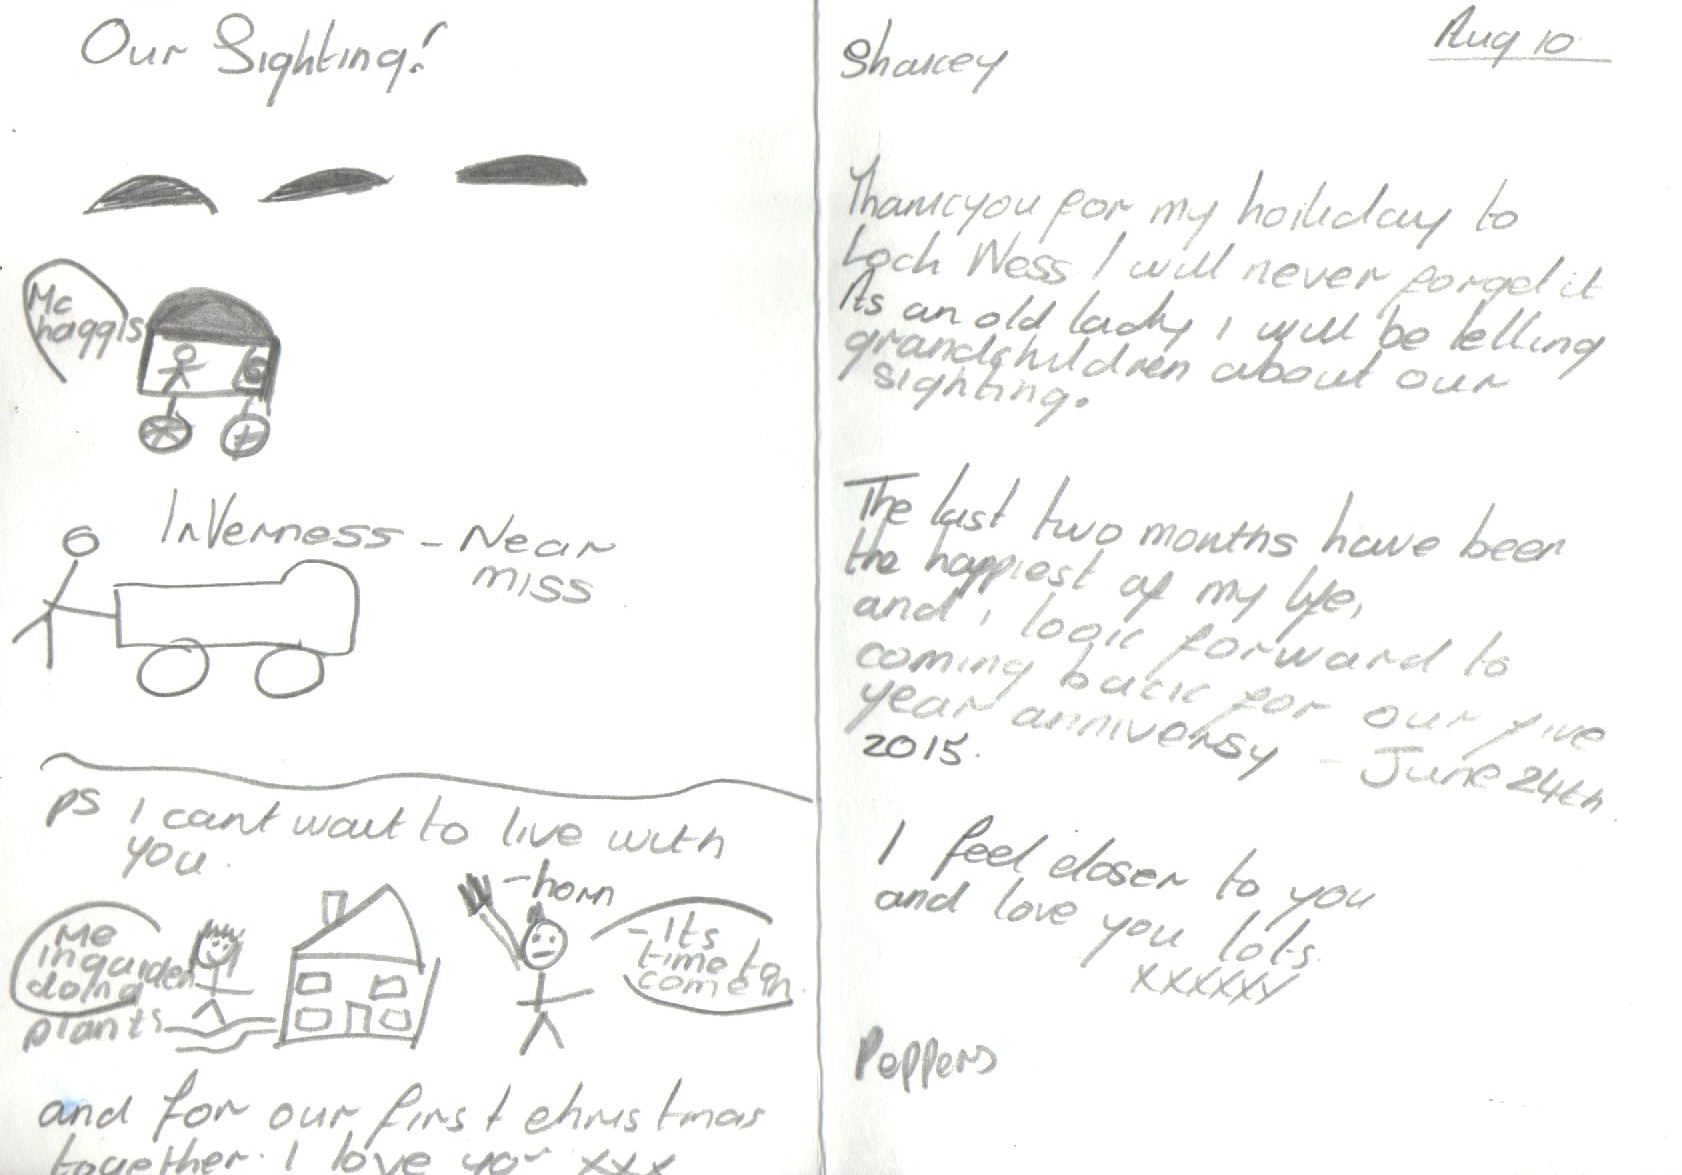 Our Sighting!
Mc
haggis
InVerness - Near
miss
ps I cant wait to live with
you.
- horn
Me
in garden
doing
plants
- Its
time to
come in.
and for our first christmas
together. I love you xxx
Aug 10
Sharkey
Thankyou for my holiday to
Loch Ness I will never forget it
As an old lady I will be telling
grandchildren about our
sighting.
The last two months have been
the happiest of my life,
and i look forward to
coming back for our five
year anniversy - June 24th
2015.
I feel closer to you
and love you lots.
xxxxxx
Peppers